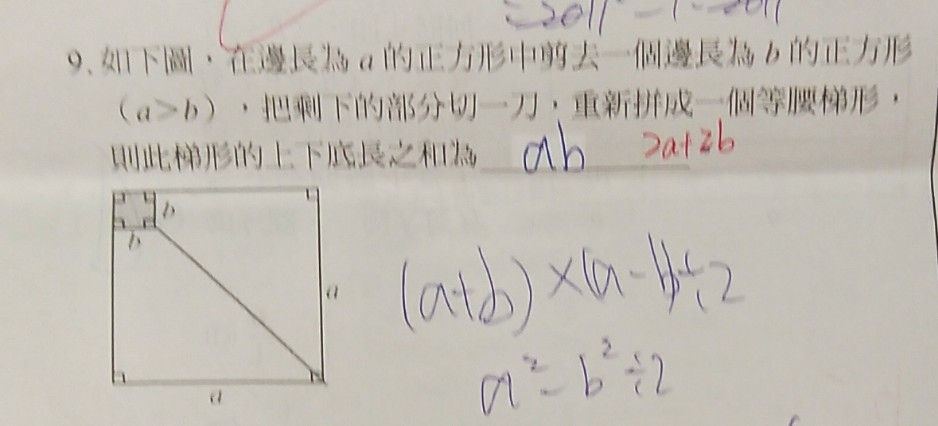 =2011² - 1 - 2011
9. 如下圖，在邊長為 a 的正方形中剪去一個邊長為 b 的正方形
（a>b），把剩下的部分切一刀，重新拼成一個等腰梯形，
則此梯形的上下底長之和為 ab 2a+2b
b
b
a
a
(a+b)×(a-b)÷2
a²-b²÷2